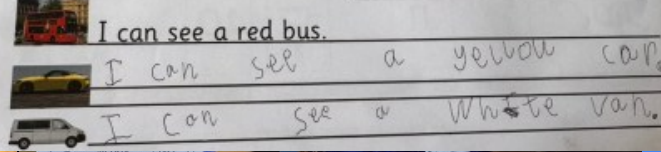 I can see a red bus.
I can see a yellow car.
I can see a white van.